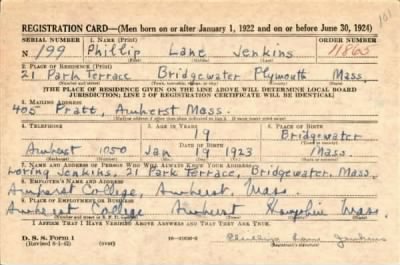 101
REGISTRATION CARD—(Men born on or after January 1, 1922 and on or before June 30, 1924)
SERIAL NUMBER 1. NAME (Print) ORDER NUMBER
N 199 Phillip Lane Jenkins 11865
(First) (Middle) (Last)
2. PLACE OF RESIDENCE (Print)
21 Park Terrace Bridgewater Plymouth Mass.
[THE PLACE OF RESIDENCE GIVEN ON THE LINE ABOVE WILL DETERMINE LOCAL BOARD
JURISDICTION; LINE 2 OF REGISTRATION CERTIFICATE WILL BE IDENTICAL]
3. MAILING ADDRESS
405 Pratt, Amherst Mass.
4. TELEPHONE 5. AGE IN YEARS 6. PLACE OF BIRTH
19 Bridgewater
DATE OF BIRTH
Amherst 1050 Jan 19 1923 Mass.
7. NAME AND ADDRESS OF PERSON WHO WILL ALWAYS KNOW YOUR ADDRESS
Loring Jenkins, 21 Park Terrace, Bridgewater, Mass.
8. EMPLOYER'S NAME AND ADDRESS
Amherst College, Amherst, Mass.
9. PLACE OF EMPLOYMENT OR BUSINESS
Amherst College Amherst Hampshire Mass.
I AFFIRM THAT I HAVE VERIFIED ABOVE ANSWERS AND THAT THEY ARE TRUE.
D. S. S. Form 1
Phillip Lane Jenkins
(Registrant's signature)